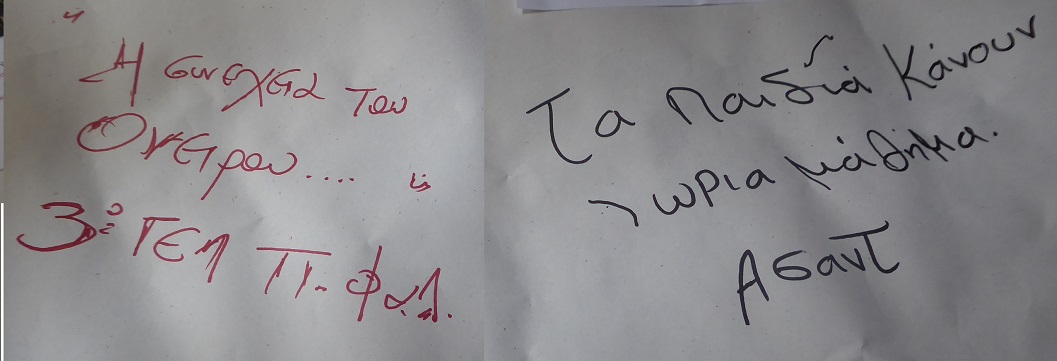 "Η συνεχεια του
Ονειρου.... "
3ο: ΓΕΛ Π. Φαλ.
Τα παιδιά κάνουν
χωρια μάθημα.
Ασαντ